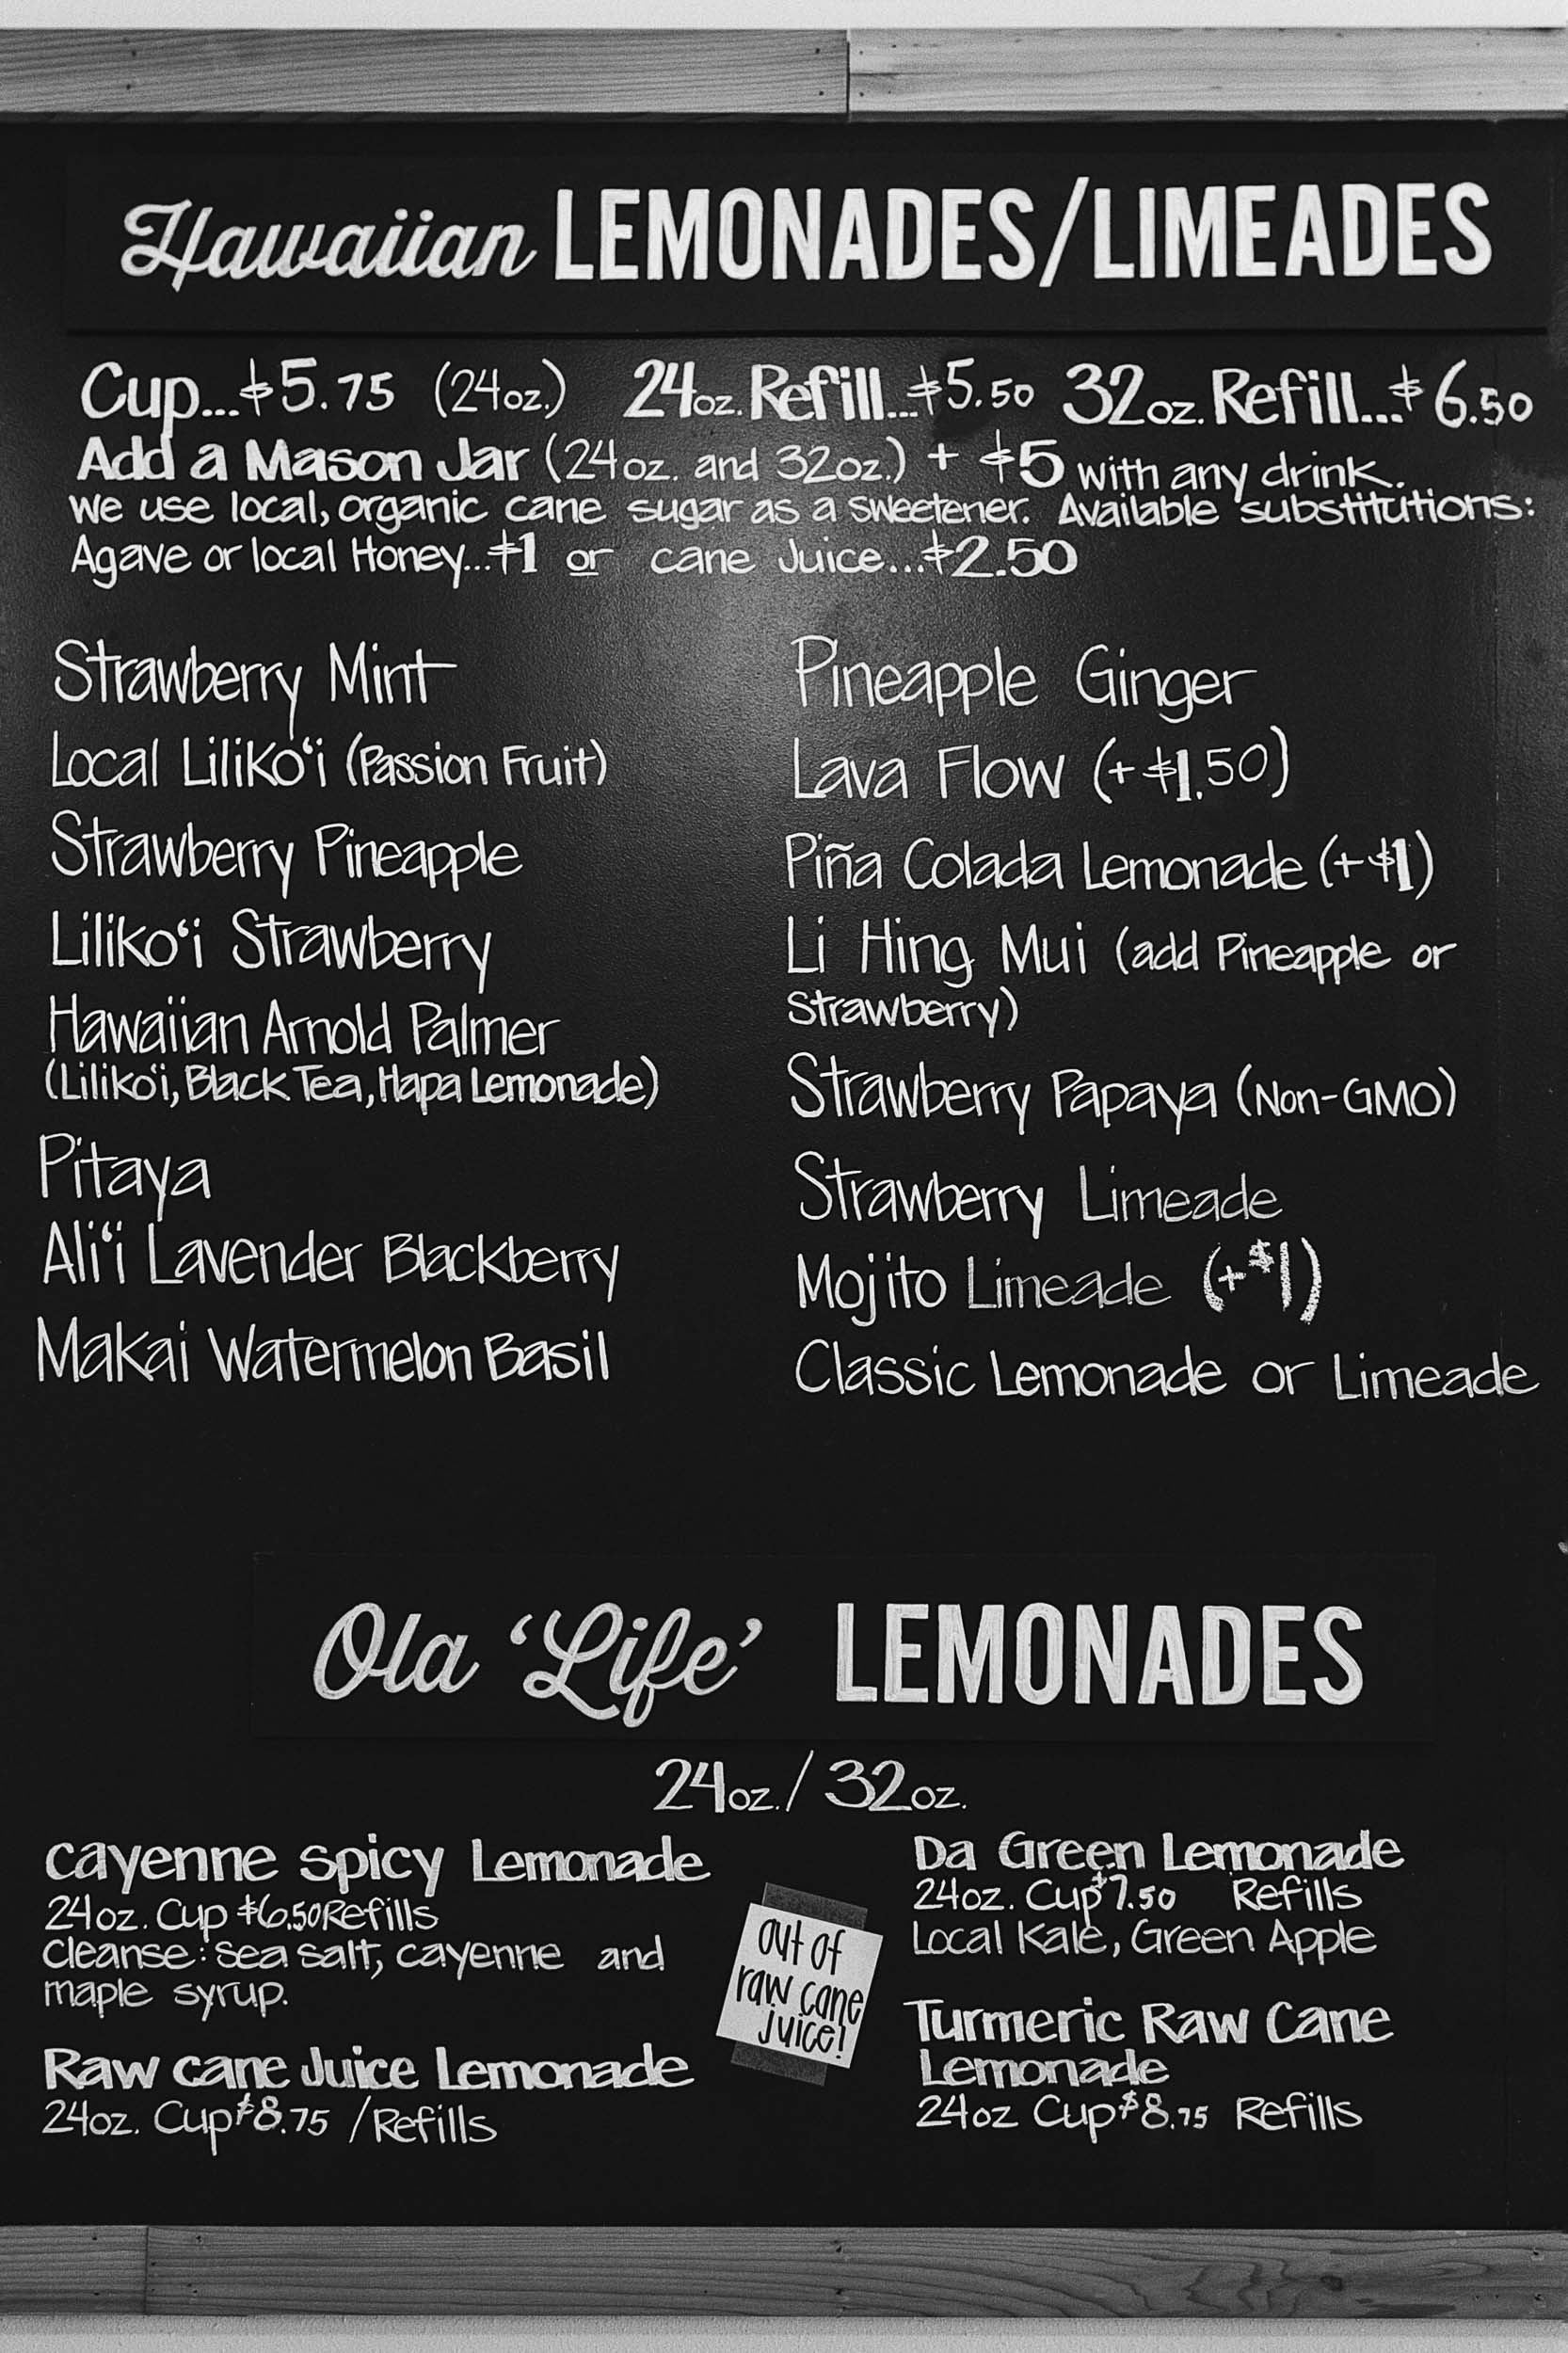 Hawaiian LEMONADES/LIMEADES
Cup...$5.75 (24oz.) 24oz. Refill...$5.50 32oz. Refill...$6.50
Add a Mason Jar (24oz. and 32oz.) + $5 with any drink.
We use local, organic cane sugar as a sweetener. Available substitutions:
Agave or local Honey...$1 or cane Juice...$2.50
Strawberry Mint
Local Liliko‘i (Passion Fruit)
Strawberry Pineapple
Liliko‘i Strawberry
Hawaiian Arnold Palmer
(Liliko‘i, Black Tea, Hapa Lemonade)
Pitaya
Ali‘i Lavender Blackberry
Makai Watermelon Basil
Pineapple Ginger
Lava Flow (+$1.50)
Piña Colada Lemonade (+$1)
Li Hing Mui (add Pineapple or
Strawberry)
Strawberry Papaya (Non-GMO)
Strawberry Limeade
Mojito Limeade (+$1)
Classic Lemonade or Limeade
Ola ‘Life’ LEMONADES
24oz. / 32oz.
Cayenne Spicy Lemonade
24oz. Cup $6.50 Refills
Cleanse: Sea Salt, cayenne and
maple syrup.
Raw Cane Juice Lemonade
24oz. Cup $8.75 / Refills
out of
raw cane
juice!
Da Green Lemonade
24oz. Cup $7.50 Refills
Local Kale, Green Apple
Turmeric Raw Cane
Lemonade
24oz Cup $8.75 Refills